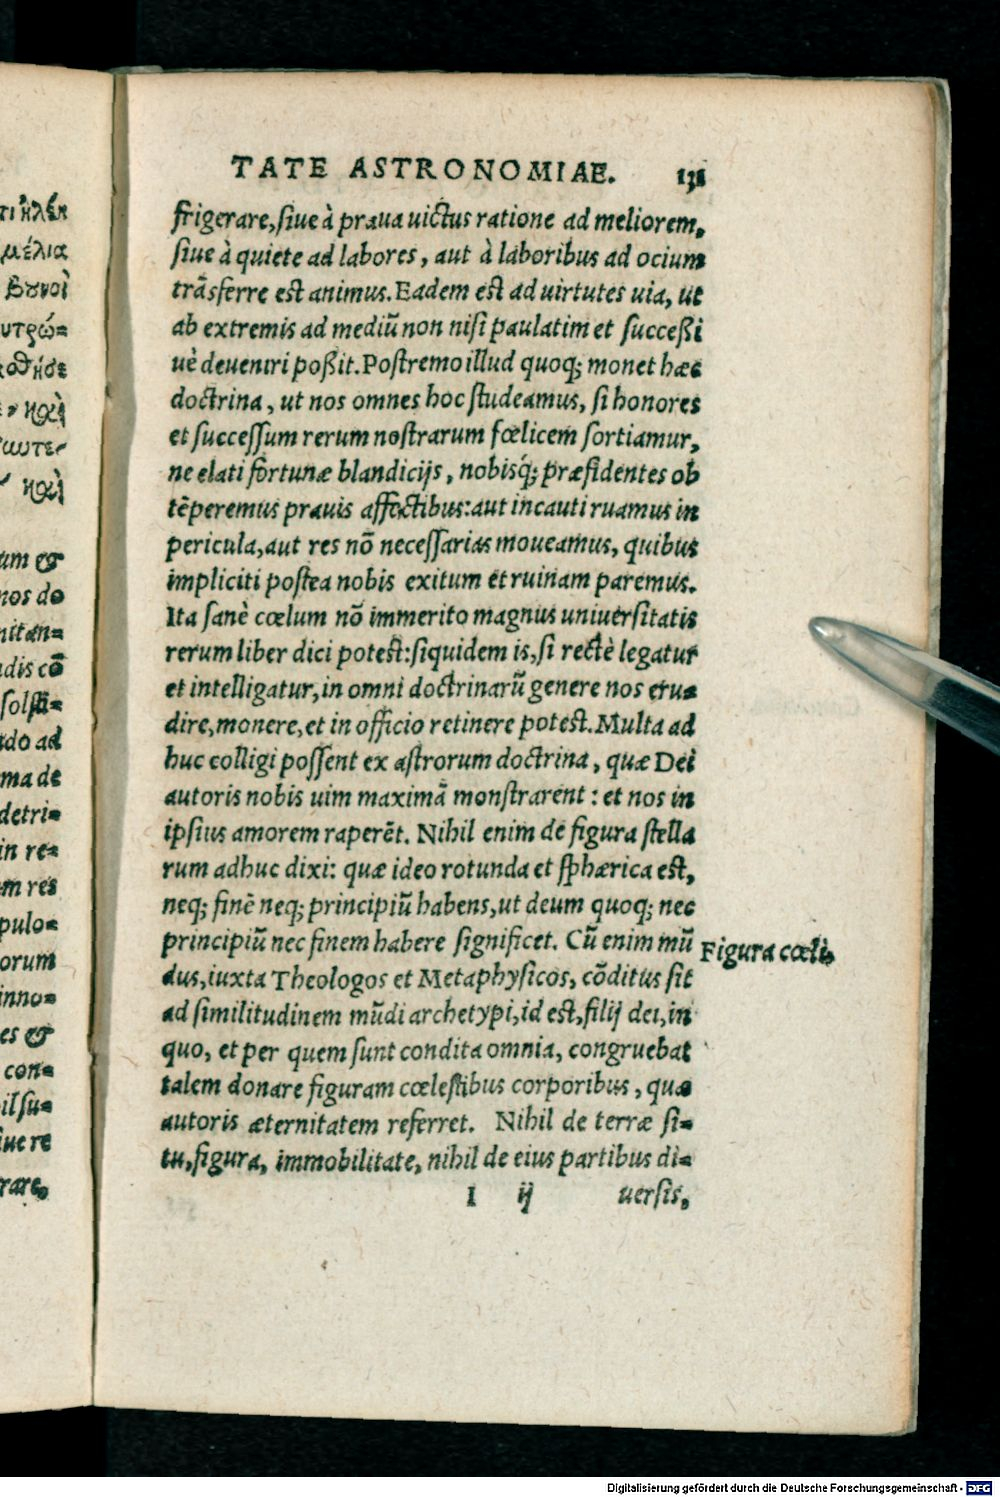 TATE ASTRONOMIAE. 131
frigerare, siue à praua uictus ratione ad meliorem,
siue à quiete ad labores, aut à laboribus ad ocium
trãsferre est animus. Eadem est ad uirtutes uia, ut
ab extremis ad mediũ non nisi paulatim et succeßi
uè deueniri poßit. Postremo illud quoq; monet hæc
doctrina, ut nos omnes hoc studeamus, si honores
et successum rerum nostrarum fœlicem sortiamur,
ne elati fortunæ blandicijs, nobisq́; præsidentes ob
tẽperemus prauis affectibus: aut incauti ruamus in
pericula, aut res nõ necessarias moueamus, quibus
impliciti postea nobis exitum et ruinam paremus.
Ita sanè cœlum nõ immerito magnus uniuersitatis
rerum liber dici potest: siquidem is, si rectè legatur
et intelligatur, in omni doctrinarũ genere nos eru=
dire, monere, et in officio retinere potest. Multa ad
huc colligi possent ex astrorum doctrina, quæ Dei
autoris nobis uim maximã monstrarent: et nos in
ipsius amorem raperẽt. Nihil enim de figura stella
rum adhuc dixi: quæ ideo rotunda et sphærica est,
neq; finẽ neq; principiũ habens, ut deum quoq; nec
principiũ nec finem habere significet. Cũ enim mũ
dus, iuxta Theologos et Metaphysicos, cõditus sit
ad similitudinem mũdi archetypi, id est, filij dei, in
quo, et per quem sunt condita omnia, congruebat
talem donare figuram cœlestibus corporibus, quæ
autoris æternitatem referret. Nihil de terræ si=
tu, figura, immobilitate, nihil de eius partibus di=
I ij uersis,
Figura cœli.
τι
μέλια
βουνοὶ
um &
nos do
nitan=
dis cõ
solsti=
do ad
ma de
detri=
in re=
m res
pulo=
orum
inno=
es &
con=
il su=
iue re
rare,
Digitalisierung gefördert durch die Deutsche Forschungsgemeinschaft - DFG